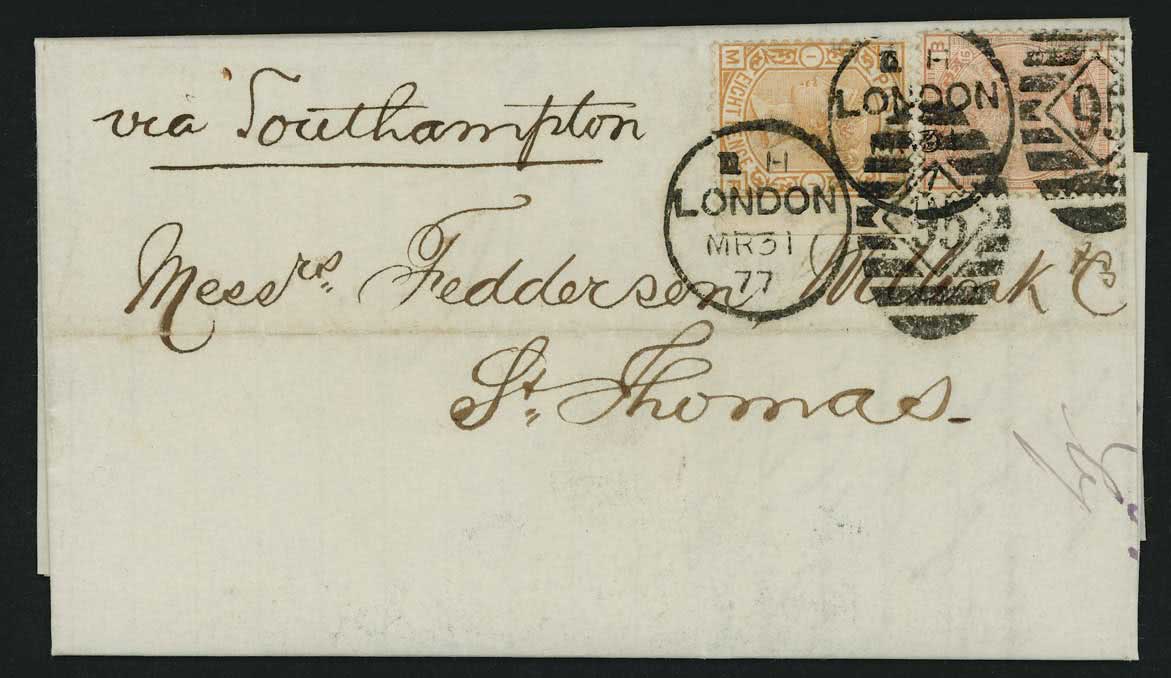 via Southampton
B H
LONDON
MR31
77
B H
LONDON
95
95
EIGHT PENCE
Messrs. Feddersen, Willink & Co
St. Thomas